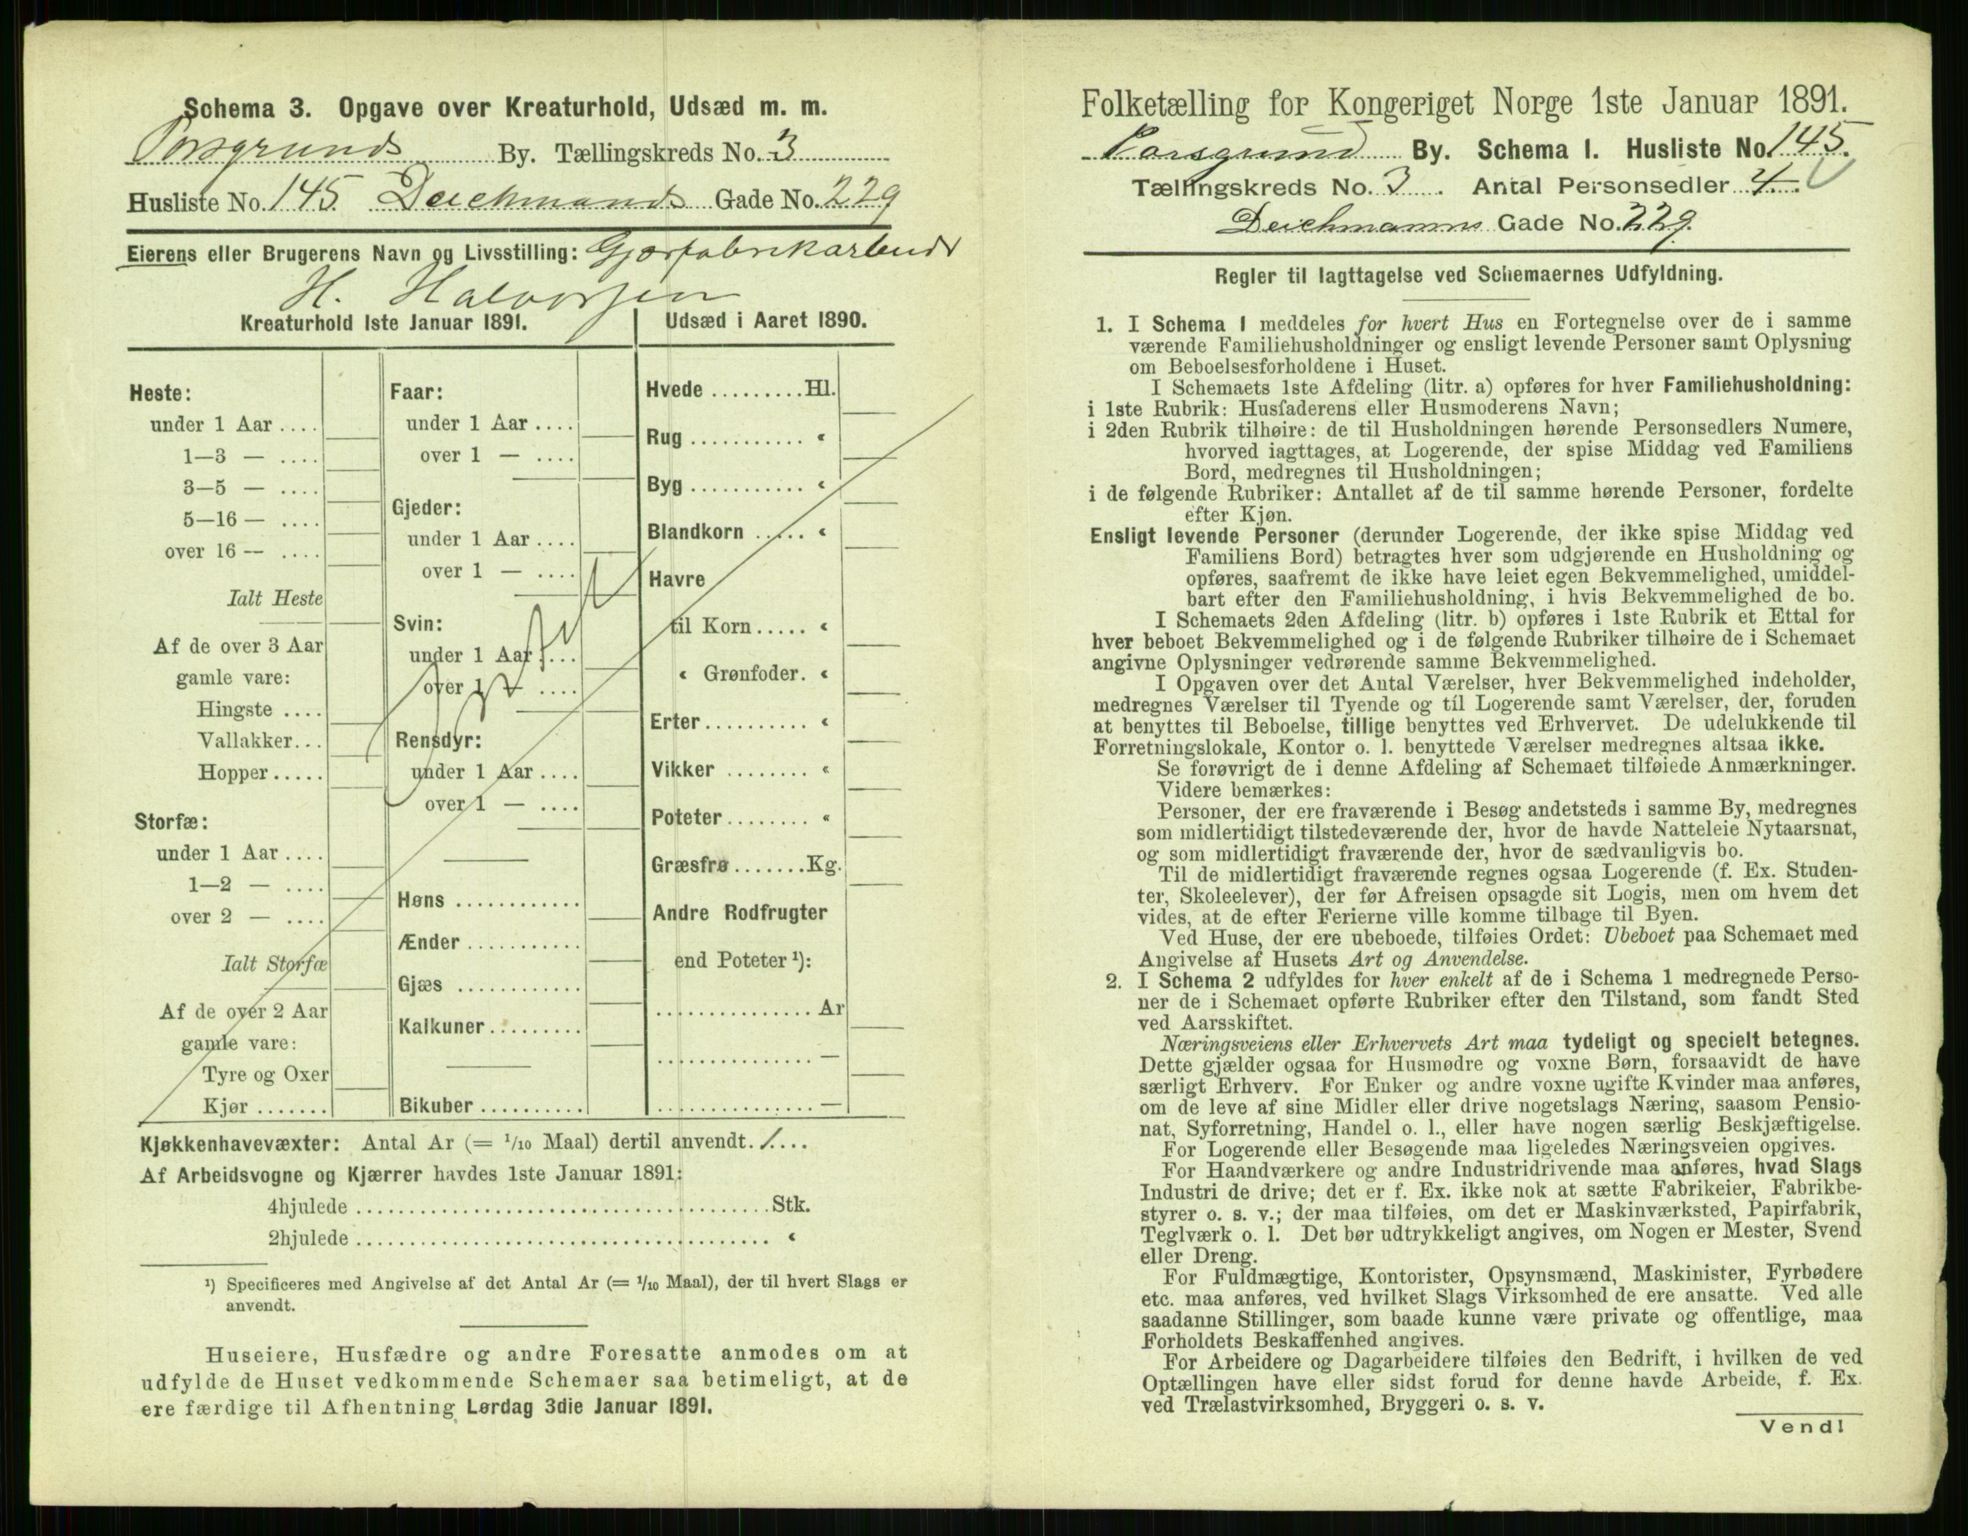 Schema 3. Opgave over Kreaturhold, Udsæd m. m.
Porsgrunds By. Tællingskreds No. 3
Husliste No. 145 Deichmands Gade No. 229
Eierens eller Brugerens Navn og Livsstilling: Gjærfabrikarbeider
H. Halvorsen
Kreaturhold 1ste Januar 1891.
Heste:
under 1 Aar ....
1—3 — ....
3—5 — ....
5—16 — ....
over 16 — ....
Ialt Heste
Af de over 3 Aar
gamle vare:
Hingste ....
Vallakker...
Hopper.....
Storfæ:
under 1 Aar ....
1—2 — ....
over 2 — ....
Ialt Storfæ
Af de over 2 Aar
gamle vare:
Tyre og Oxer
Kjør .......
Faar:
under 1 Aar ....
over 1 — ....
Gjeder:
under 1 Aar ....
over 1 — ....
Svin:
under 1 Aar ....
over 1 — ....
Rensdyr:
under 1 Aar ....
over 1 — ....
Høns ............
Ænder ...........
Gjæs ............
Kalkuner.........
Bikuber ..........
Udsæd i Aaret 1890.
Hvede .........Hl.
Rug ........... “
Byg ........... “
Blandkorn ..... “
Havre
til Korn..... “
“ Grønfoder. “
Erter.......... “
Vikker ........ “
Poteter........ “
Græsfrø .......Kg.
Andre Rodfrugter
end Poteter ¹):
............... Ar
............... —
............... —
Kjøkkenhavevæxter: Antal Ar (= 1/10 Maal) dertil anvendt. 1...
Af Arbeidsvogne og Kjærrer havdes 1ste Januar 1891:
4hjulede ....................................Stk.
2hjulede .................................... “
¹) Specificeres med Angivelse af det Antal Ar (= 1/10 Maal), der til hvert Slags er
anvendt.
Huseiere, Husfædre og andre Foresatte anmodes om at
udfylde de Huset vedkommende Schemaer saa betimeligt, at de
ere færdige til Afhentning Lørdag 3die Januar 1891.
Folketælling for Kongeriget Norge 1ste Januar 1891.
Porsgrund By. Schema 1. Husliste No. 145.
Tællingskreds No. 3. Antal Personsedler 4.
Deichmanns Gade No. 229.
Regler til Iagttagelse ved Schemaernes Udfyldning.
1. I Schema 1 meddeles for hvert Hus en Fortegnelse over de i samme
værende Familiehusholdninger og ensligt levende Personer samt Oplysning
om Beboelsesforholdene i Huset.
I Schemaets 1ste Afdeling (litr. a) opføres for hver Familiehusholdning:
i 1ste Rubrik: Husfaderens eller Husmoderens Navn;
i 2den Rubrik tilhøire: de til Husholdningen hørende Personsedlers Numere,
hvorved iagttages, at Logerende, der spise Middag ved Familiens
Bord, medregnes til Husholdningen;
i de følgende Rubriker: Antallet af de til samme hørende Personer, fordelte
efter Kjøn.
Ensligt levende Personer (derunder Logerende, der ikke spise Middag ved
Familiens Bord) betragtes hver som udgjørende en Husholdning og
opføres, saafremt de ikke have leiet egen Bekvemmelighed, umiddel-
bart efter den Familiehusholdning, i hvis Bekvemmelighed de bo.
I Schemaets 2den Afdeling (litr. b) opføres i 1ste Rubrik et Ettal for
hver beboet Bekvemmelighed og i de følgende Rubriker tilhøire de i Schemaet
angivne Oplysninger vedrørende samme Bekvemmelighed.
I Opgaven over det Antal Værelser, hver Bekvemmelighed indeholder,
medregnes Værelser til Tyende og til Logerende samt Værelser, der, foruden
at benyttes til Beboelse, tillige benyttes ved Erhvervet. De udelukkende til
Forretningslokale, Kontor o. l. benyttede Værelser medregnes altsaa ikke.
Se forøvrigt de i denne Afdeling af Schemaet tilføiede Anmærkninger.
Videre bemærkes:
Personer, der ere fraværende i Besøg andetsteds i samme By, medregnes
som midlertidigt tilstedeværende der, hvor de havde Natteleie Nytaarsnat,
og som midlertidigt fraværende der, hvor de sædvanligvis bo.
Til de midlertidigt fraværende regnes ogsaa Logerende (f. Ex. Studen-
ter, Skoleelever), der før Afreisen opsagde sit Logis, men om hvem det
vides, at de efter Ferierne ville komme tilbage til Byen.
Ved Huse, der ere ubeboede, tilføies Ordet: Ubeboet paa Schemaet med
Angivelse af Husets Art og Anvendelse.
2. I Schema 2 udfyldes for hver enkelt af de i Schema 1 medregnede Perso-
ner de i Schemaet opførte Rubriker efter den Tilstand, som fandt Sted
ved Aarsskiftet.
Næringsveiens eller Erhvervets Art maa tydeligt og specielt betegnes.
Dette gjælder ogsaa for Husmødre og voxne Børn, forsaavidt de have
særligt Erhverv. For Enker og andre voxne ugifte Kvinder maa anføres,
om de leve af sine Midler eller drive nogetslags Næring, saasom Pensio-
nat, Syforretning, Handel o. l., eller have nogen særlig Beskjæftigelse.
For Logerende eller Besøgende maa ligeledes Næringsveien opgives.
For Haandværkere og andre Industridrivende maa anføres, hvad Slags
Industri de drive; det er f. Ex. ikke nok at sætte Fabrikeier, Fabrikbe-
styrer o. s. v.; der maa tilføies, om det er Maskinværksted, Papirfabrik,
Teglværk o. l. Det bør udtrykkeligt angives, om Nogen er Mester, Svend
eller Dreng.
For Fuldmægtige, Kontorister, Opsynsmænd, Maskinister, Fyrbødere
etc. maa anføres, ved hvilket Slags Virksomhed de ere ansatte. Ved alle
saadanne Stillinger, som baade kunne være private og offentlige, maa
Forholdets Beskaffenhed angives.
For Arbeidere og Dagarbeidere tilføies den Bedrift, i hvilken de ved
Optællingen have eller sidst forud for denne havde Arbeide, f. Ex.
ved Trælastvirksomhed, Bryggeri o. s. v.
Vend!